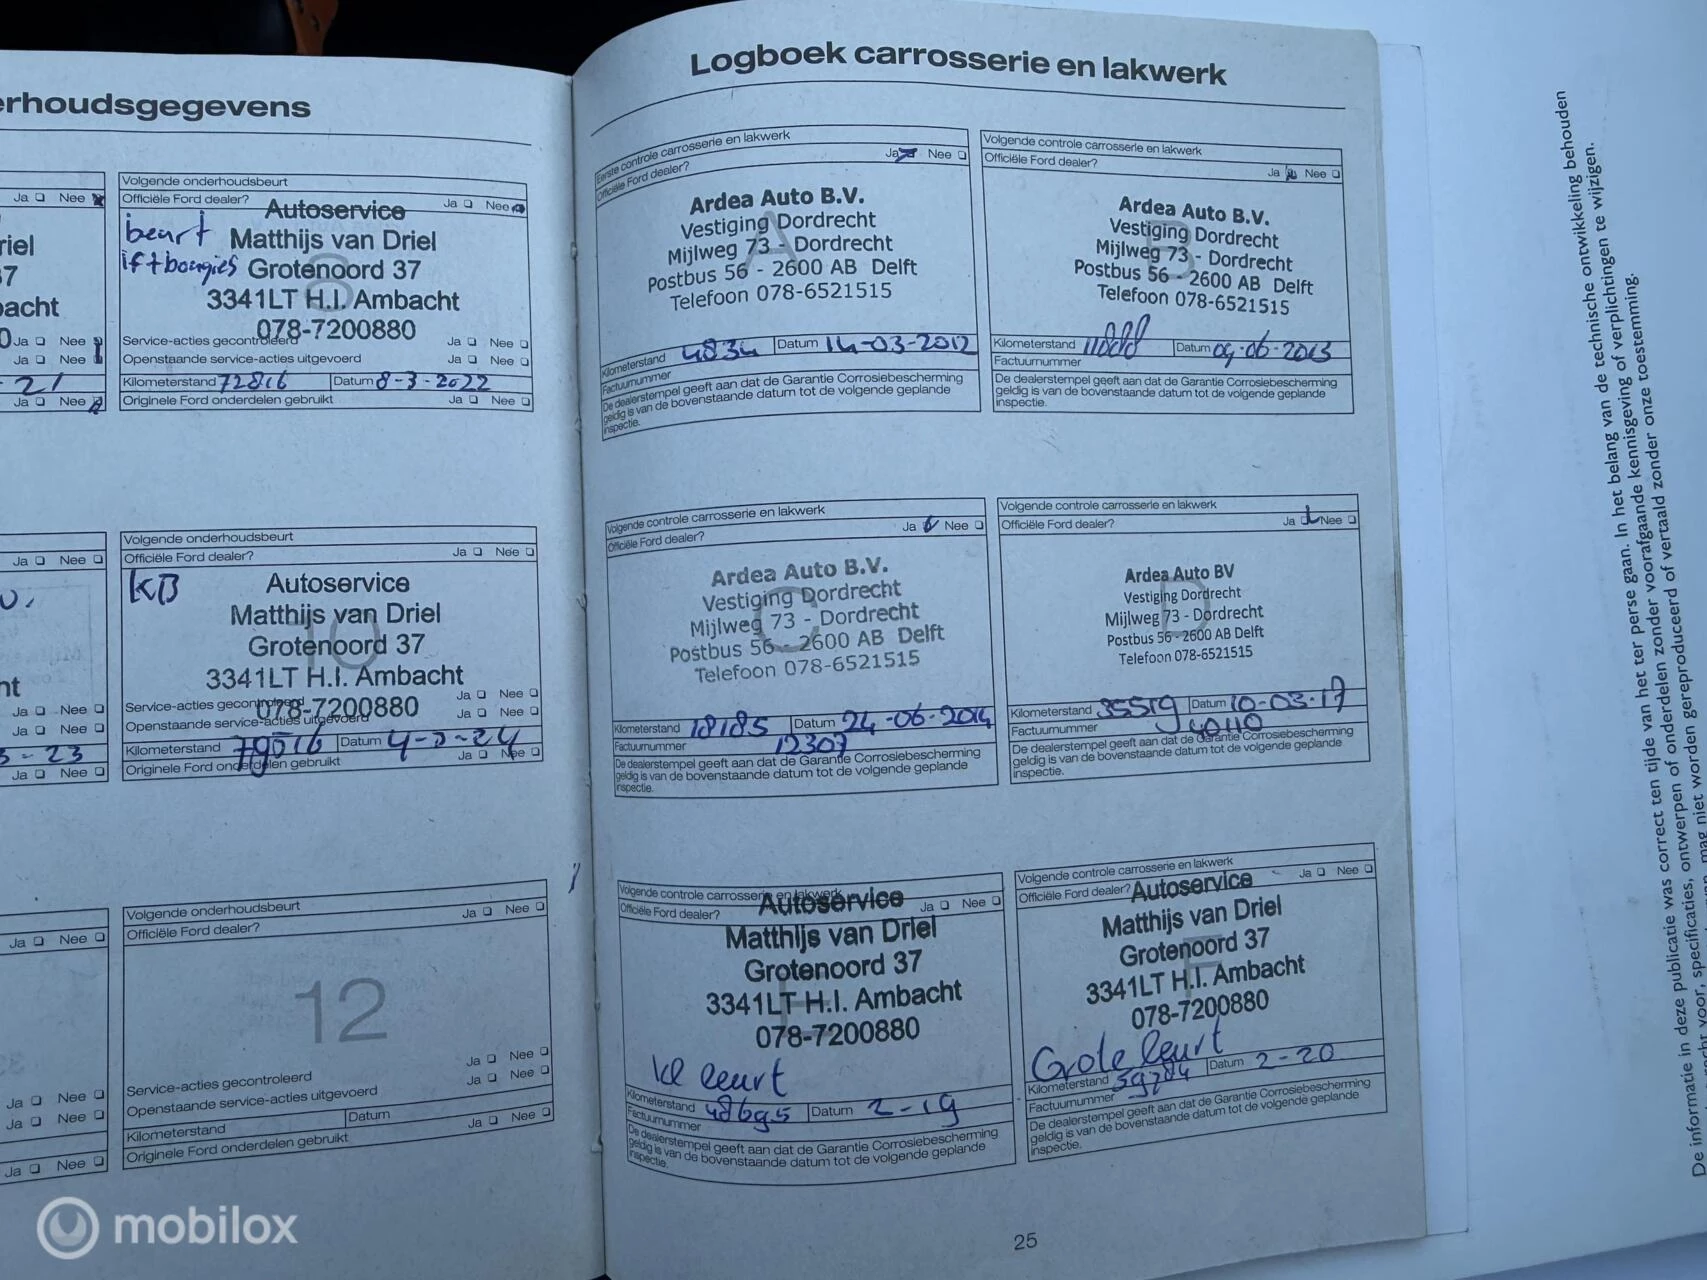 erhoudsgegevens
Ja Nee
riel
37
bacht
0 Ja Nee
Ja Nee
- 21
Ja Nee
Volgende onderhoudsbeurt
Officiële Ford dealer?
Ja Nee
beurt
Autoservice
Matthijs van Driel
Grotenoord 37
3341LT H.I. Ambacht
078-7200880
Service-acties gecontroleerd
Ja Nee
Openstaande service-acties uitgevoerd
Ja Nee
Kilometerstand 72816 Datum 8-3-2022
Originele Ford onderdelen gebruikt
Ja Nee
Ja Nee
ht
Ja Nee
Ja Nee
3 - 23
Ja Nee
Volgende onderhoudsbeurt
Officiële Ford dealer?
Ja Nee
KB
Autoservice
Matthijs van Driel
Grotenoord 37
3341LT H.I. Ambacht
078-7200880
Service-acties gecontroleerd
Ja Nee
Openstaande service-acties uitgevoerd
Ja Nee
Kilometerstand Datum
Originele Ford onderdelen gebruikt
Ja Nee
Ja Nee
Ja Nee
Ja Nee
Ja Nee
Volgende onderhoudsbeurt
Officiële Ford dealer?
Ja Nee
12
Service-acties gecontroleerd
Ja Nee
Openstaande service-acties uitgevoerd
Ja Nee
Kilometerstand Datum
Originele Ford onderdelen gebruikt
Ja Nee
Logboek carrosserie en lakwerk
Eerste controle carrosserie en lakwerk
Officiële Ford dealer?
Ja Nee
A
Ardea Auto B.V.
Vestiging Dordrecht
Mijlweg 73 - Dordrecht
Postbus 56 - 2600 AB Delft
Telefoon 078-6521515
Kilometerstand 4834 Datum 14-03-2012
Factuurnummer
De dealerstempel geeft aan dat de Garantie Corrosiebescherming
geldig is van de bovenstaande datum tot de volgende geplande
inspectie.
Volgende controle carrosserie en lakwerk
Officiële Ford dealer?
Ja Nee
Ardea Auto B.V.
Vestiging Dordrecht
Mijlweg 73 - Dordrecht
Postbus 56 - 2600 AB Delft
Telefoon 078-6521515
Kilometerstand Datum 04-06-2013
Factuurnummer
De dealerstempel geeft aan dat de Garantie Corrosiebescherming
geldig is van de bovenstaande datum tot de volgende geplande
inspectie.
Volgende controle carrosserie en lakwerk
Officiële Ford dealer?
Ja Nee
C
Ardea Auto B.V.
Vestiging Dordrecht
Mijlweg 73 - Dordrecht
Postbus 56 - 2600 AB Delft
Telefoon 078-6521515
Kilometerstand 18185 Datum 24-06-2014
Factuurnummer 12307
De dealerstempel geeft aan dat de Garantie Corrosiebescherming
geldig is van de bovenstaande datum tot de volgende geplande
inspectie.
Volgende controle carrosserie en lakwerk
Officiële Ford dealer?
Ja Nee
D
Ardea Auto BV
Vestiging Dordrecht
Mijlweg 73 - Dordrecht
Postbus 56 - 2600 AB Delft
Telefoon 078-6521515
Kilometerstand 35519 Datum 10-03-17
Factuurnummer 40110
De dealerstempel geeft aan dat de Garantie Corrosiebescherming
geldig is van de bovenstaande datum tot de volgende geplande
inspectie.
Volgende controle carrosserie en lakwerk
Officiële Ford dealer?
Ja Nee
Autoservice
Matthijs van Driel
Grotenoord 37
3341LT H.I. Ambacht
078-7200880
kl beurt
Kilometerstand 48695 Datum 2-19
Factuurnummer
De dealerstempel geeft aan dat de Garantie Corrosiebescherming
geldig is van de bovenstaande datum tot de volgende geplande
inspectie.
Volgende controle carrosserie en lakwerk
Officiële Ford dealer?
Ja Nee
Autoservice
Matthijs van Driel
Grotenoord 37
3341LT H.I. Ambacht
078-7200880
Grote beurt
Kilometerstand 59784 Datum 2-20
Factuurnummer
De dealerstempel geeft aan dat de Garantie Corrosiebescherming
geldig is van de bovenstaande datum tot de volgende geplande
inspectie.
25
De informatie in deze publicatie was correct ten tijde van het ter perse gaan. In het belang van de technische ontwikkeling behouden
recht voor, specificaties, ontwerpen of onderdelen zonder voorafgaande kennisgeving of verplichtingen te wijzigen.
mag niet worden gereproduceerd of vertaald zonder onze toestemming.
mobilox